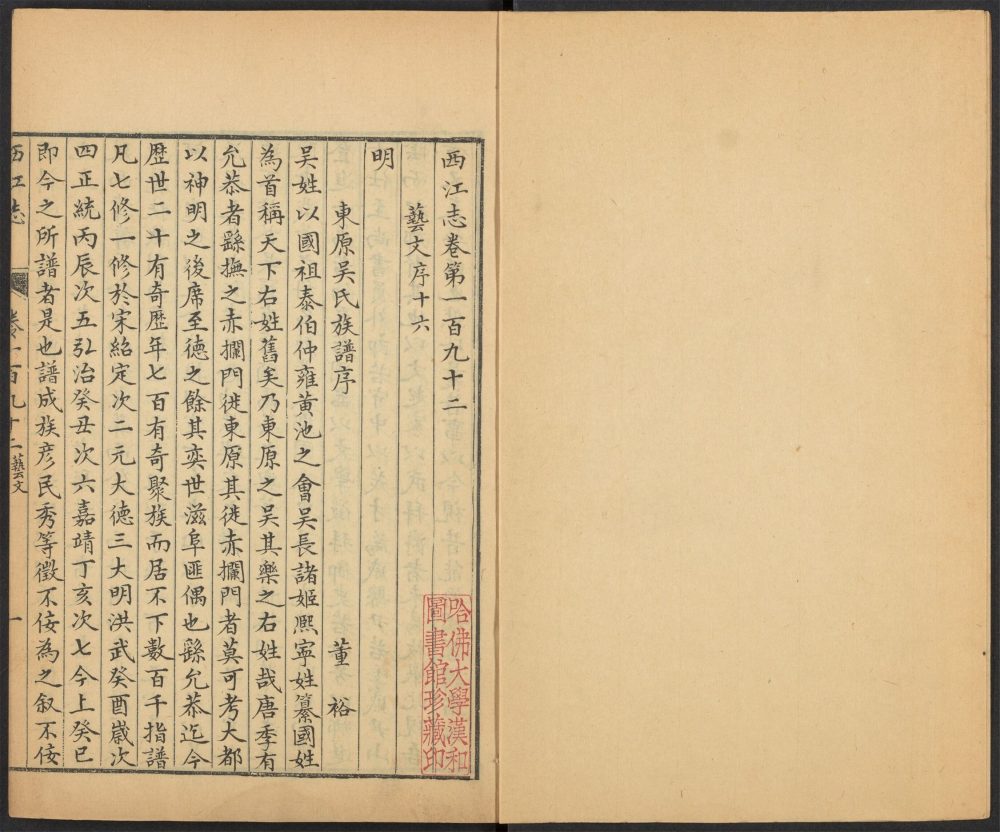 西江志卷第一百九十二
藝文序十六
明
東原吳氏族譜序 董裕
吳姓以國祖泰伯仲雍黃池之會吳長諸姬熈寧姓纂國姓
為首稱天下右姓舊矣乃東原之吳其樂之右姓哉唐季有
允恭者繇撫之赤攔門徙東原其徙赤攔門者莫可考大都
以神明之後席至德之餘其奕世滋阜匪偶也繇允恭迄今
歷世二十有奇歷年七百有奇聚族而居不下數百千指譜
凡七修一修於宋紹定次二元大德三大明洪武癸酉嵗次
四正統丙辰次五弘治癸丑次六嘉靖丁亥次七今上癸巳
即今之所譜者是也譜成族彦民秀等徵不佞為之叙不佞
西江志 卷一百九十二藝文 一
哈佛大學漢和
圖書館珍藏印